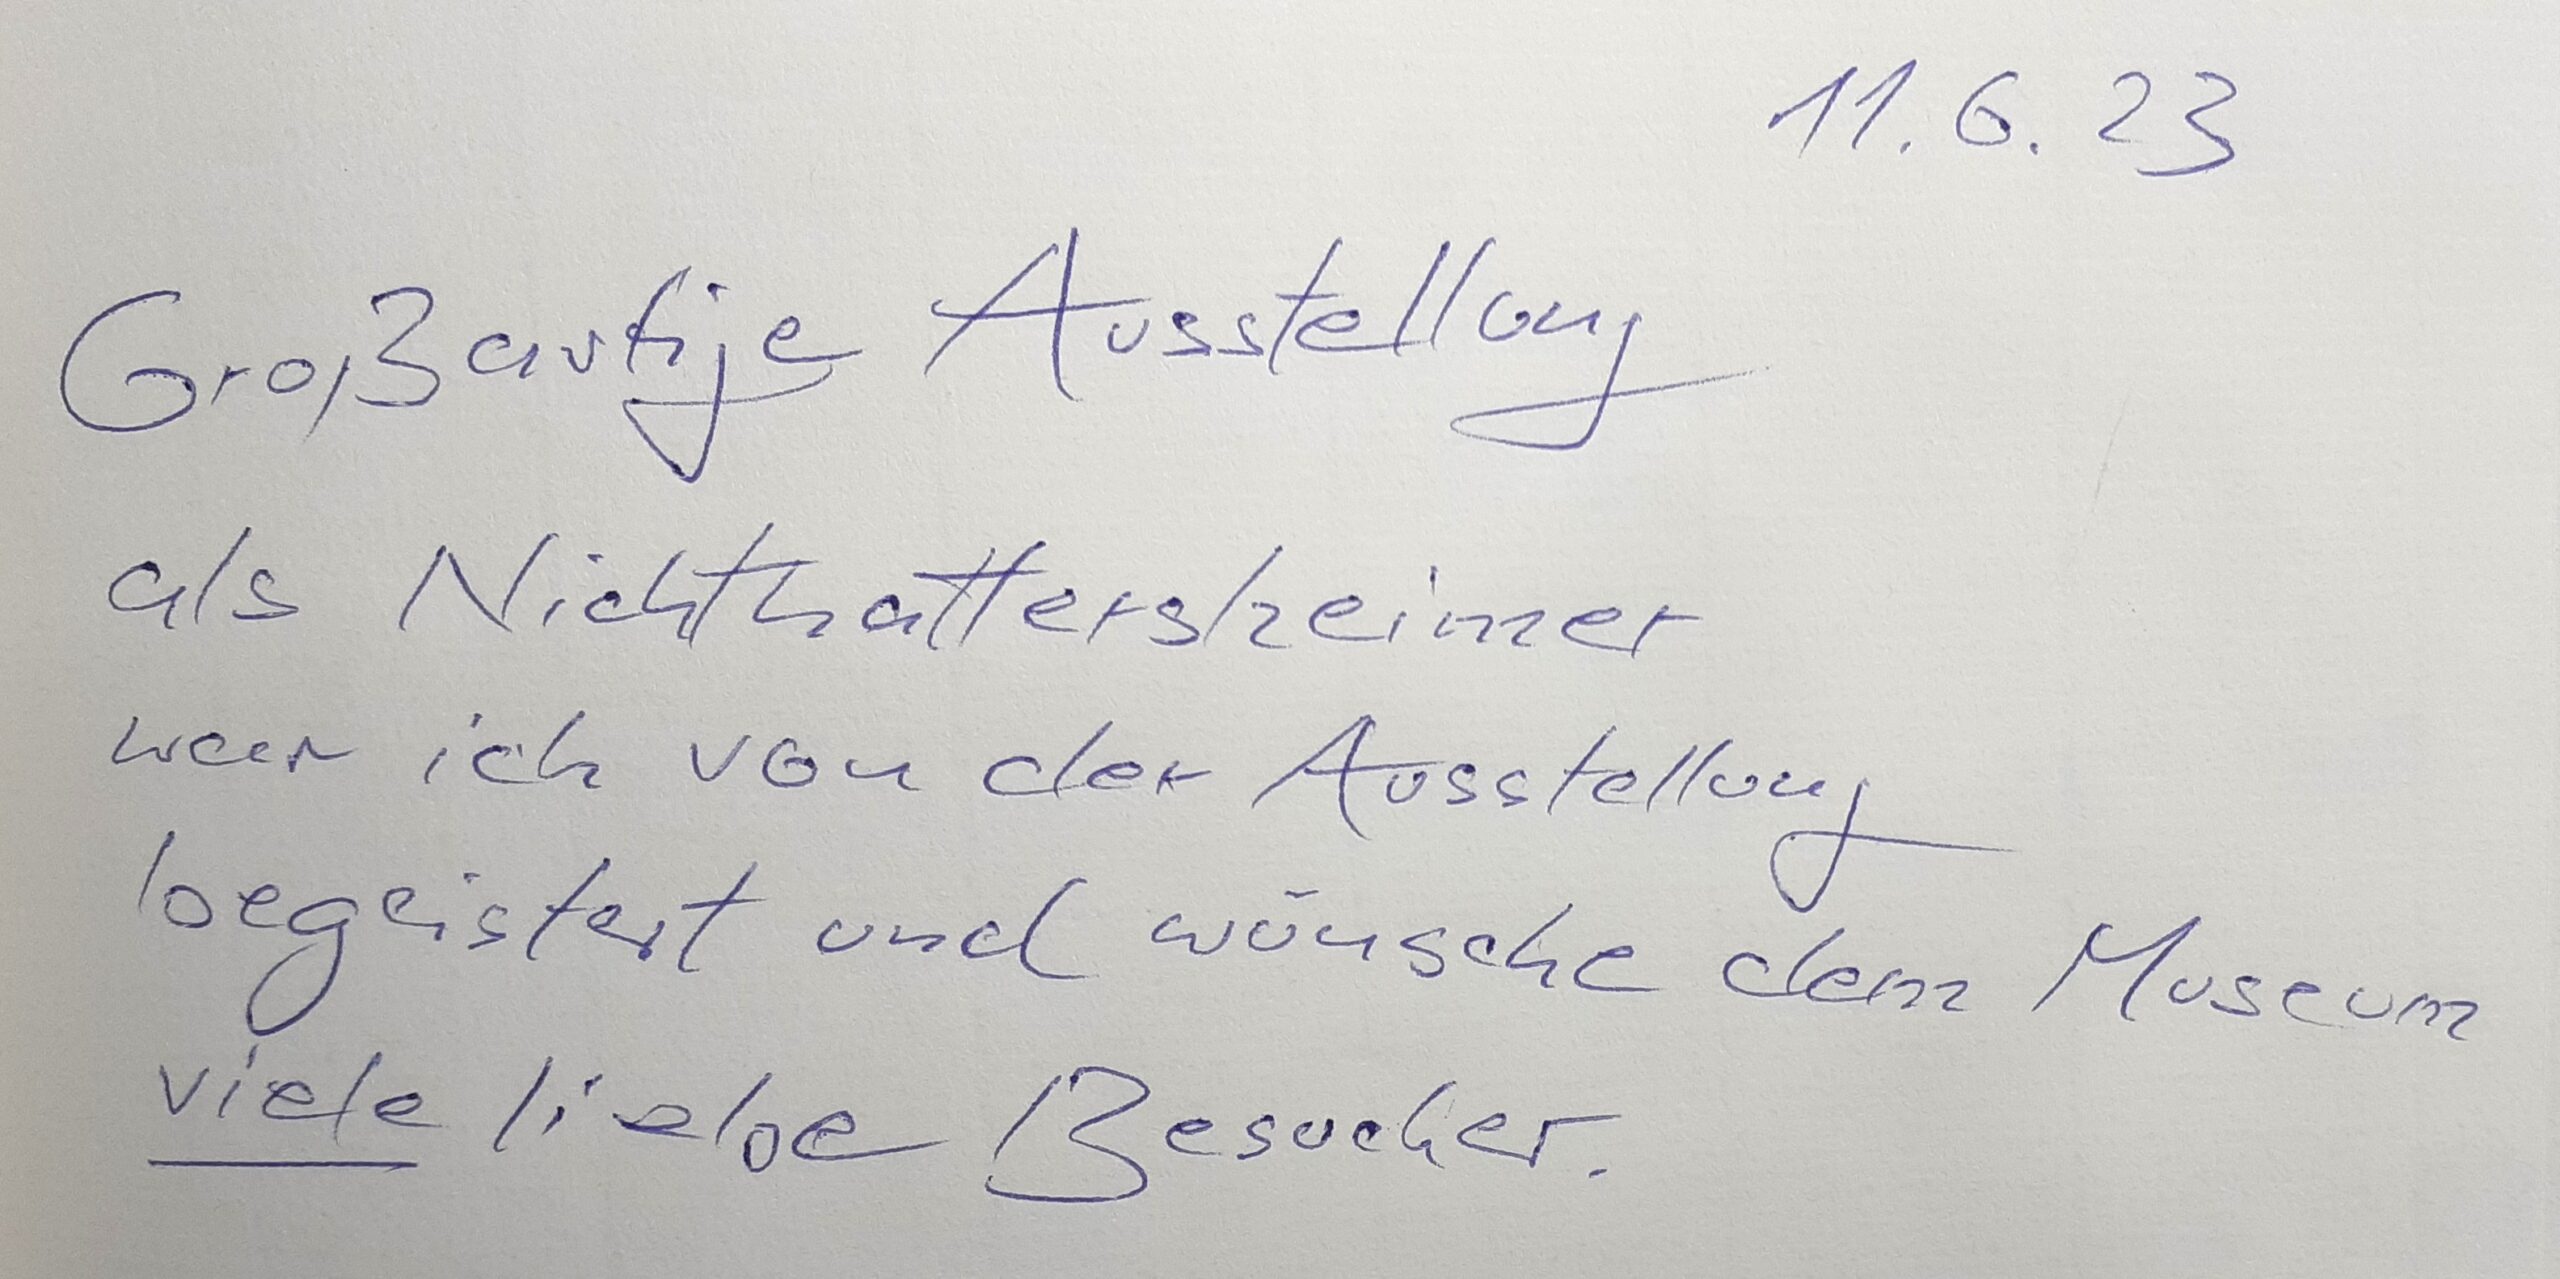 11.6.23
Großartige Ausstellung
als Nichthattersheimer
war ich von der Ausstellung
begeistert und wünsche dem Museum
viele liebe Besucher.